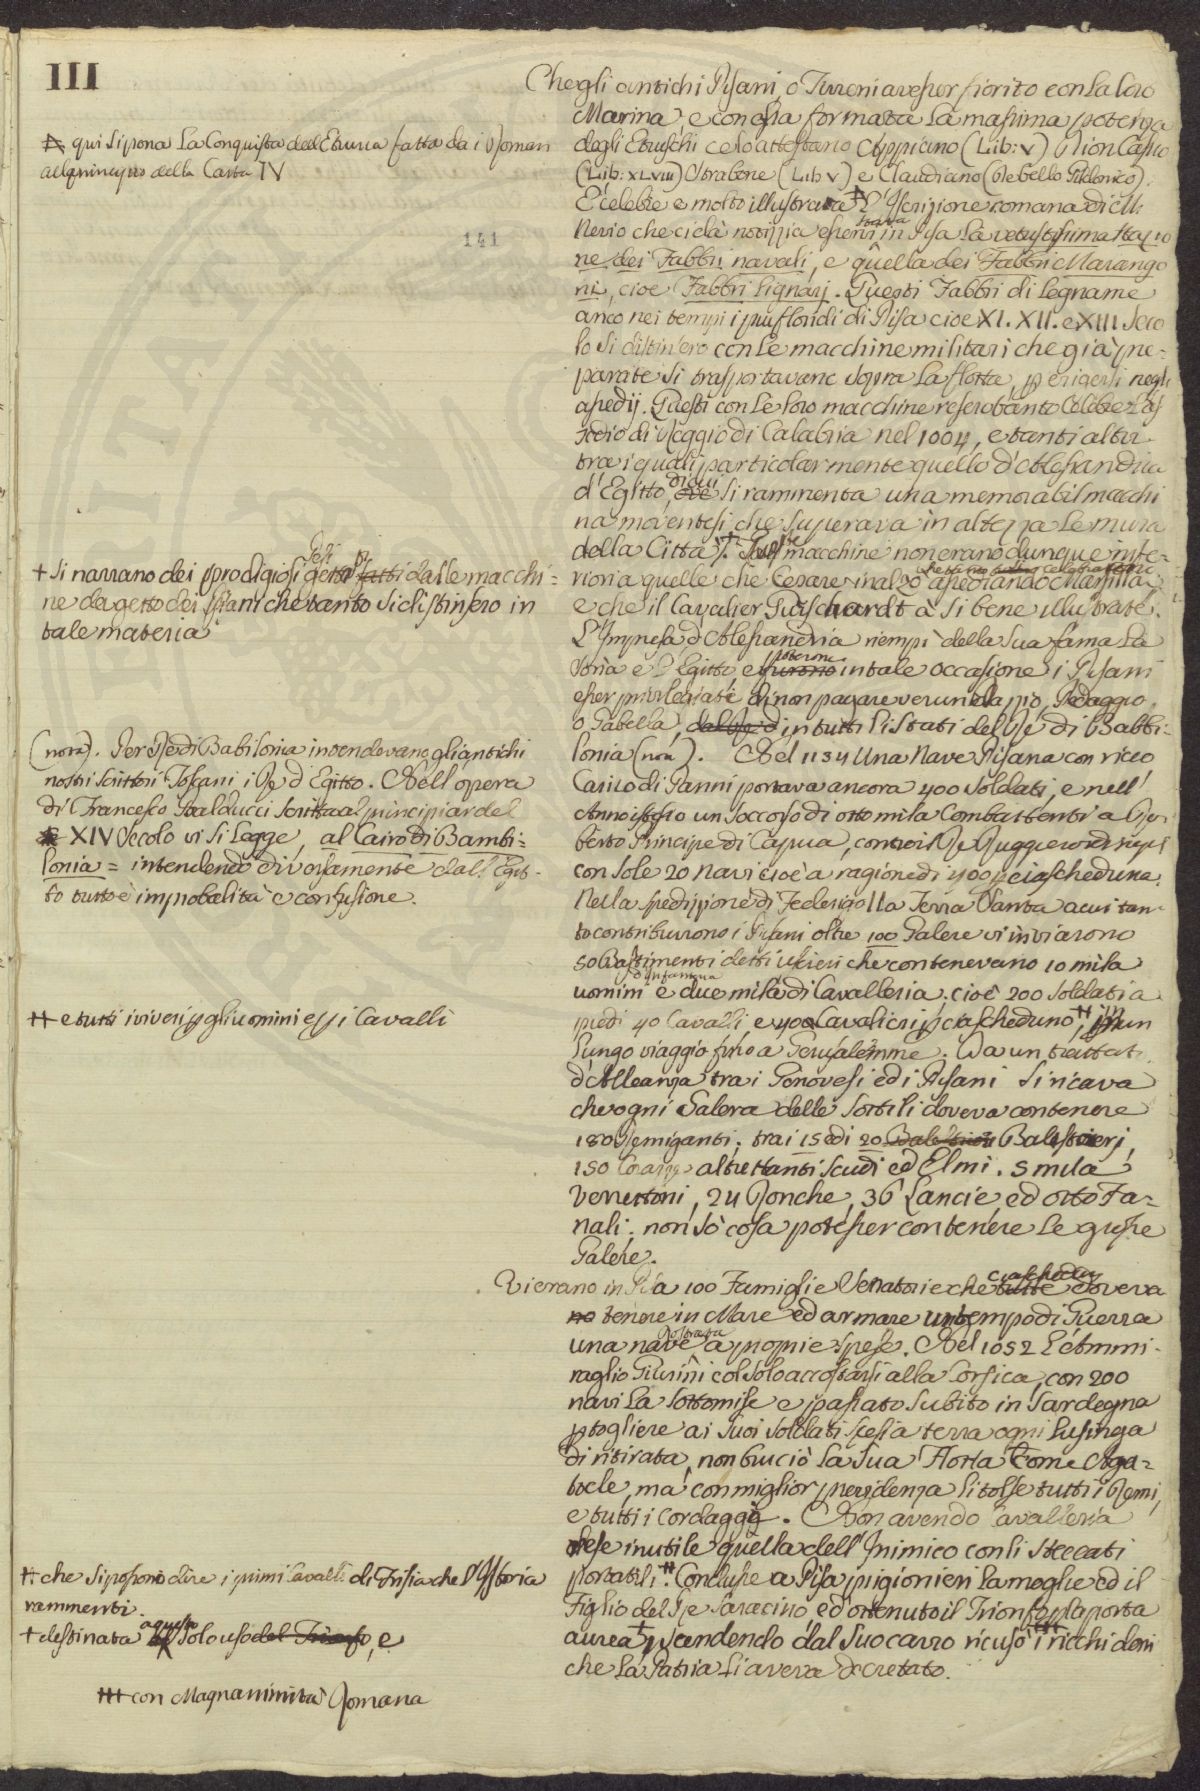 III
A qui si pona la Conquista dell Etruria fatta da i Romani
al principio della Carta IV
141
+ si narrano dei prodigiosi getti fatti dalle macchi=
ne da getto dei Pisani che tanto si distinsero in
tale materia
(nota). Per Re di Babilonia intendevano gli antichi
nostri Scrittori Toscani i Re d'Egitto. Nell'opera
di Francesco Balducci scritta al principiar del
XIV Secolo vi si legge, al Cairo di Bambi=
lonia = intendendo diversamente dall'Egit-
to tutto è improbalità e confusione.
++ e tutti i viveri p gli uomini e p i Cavalli
++ che si possono dire i primi Cavalli di Frisia che l'Istoria
rammenti.
+ destinata a questo solo uso del Trionfo, e
+++ con Magnanimità Romana
Che gli antichi Pisani, o Tirreni avesser fiorito con la loro
Marina, e con essa formata la massima potenza
degli Etruschi ce lo attestano Appiano (Lib: V) Dion Cassio
(Lib: XLVIII) Strabone (Lib V) e Claudiano (De bello Gildonico).
È celebre e molto illustrata l'Iscrizione romana di M.
Nevio che ci dà notizia esservi stata in Pisa la vetustissima stazio
ne dei Fabbri navali, e quella dei Fabbri Marango
ni, cioe Fabbri lignarj. Questi Fabbri di legname
anco nei tempi i piu floridi di Pisa cioe XI. XII. e XIII Seco
lo si distinsero con le macchine militari che già pre=
parate si trasportavano sopra la flotta, p erigersi negli
assedij. Questi con le loro macchine reser tanto Celebre l'as
sedio di Reggio di Calabria nel 1004, e tanti altri
tra i quali particolarmente quello d'Alessandria
d'Egitto, di cui si rammenta una memorabil macchi
na moventesi, che superava in altezza le mura
della Città +. Queste macchine non erano dunque infe=
riori a quelle che Cesare inalzò assediando Marsilia,
e che il Cavalier Guischardt à si bene illustrate.
L'Impresa d'Alessandria riempì della sua fama la
Soria e l'Egitto, e poterono in tale occasione i Pisani
esser privilegiati di non pagare verun dazzio, Pedaggio,
o Gabella, dal Re d in tutti li Stati del Re di Babbi=
lonia (nota). Nel 1134 Una Nave Pisana con ricco
Carico di Panni portava ancora 400 Soldati, e nell'
Anno istesso un Soccorso di otto mila Combattenti a Ro
berto Principe di Capua, contro il Re Ruggiero
con sole 20 Navi cioè a ragione di 400 p ciascheduna.
Nella spedizione di Federigo II a Terra Santa a cui tan
to contribuirono i Pisani oltre 100 Galere vi inviarono
50 Bastimenti detti Uscieri che contenevano 10 mila
uomini d'infanteria e due mila di Cavalleria, cioè 200 Soldati a
piedi 40 Cavalli, e 40 Cavalieri p ciascheduno, ++ p un
lungo viaggio fino a Gerusalemme. Da un trattato
d'Alleanza tra i Genovesi ed i Pisani si ricava
che ogni Galera delle sottili doveva contenere
180 Remiganti, tra i 15 ed i 20 Balestrieri Balestrierj,
150 Corazze altrettanti Scudi ed Elmi. 5 mila
Verrettoni, 24 Ronche, 36 Lancie, ed otto Fa=
nali; non sò cosa potesser contenere le grosse
Galere.
Vi erano in Pisa 100 Famiglie Senatorie che tutte ciascheduna doveva
no tenere in Mare ed armare in tempo di Guerra
una nave rostrata a proprie spese. Nel 1052 L'Ammi-
raglio col solo accostarsi alla Corsica, con 200
navi la sottomise e passato subito in Sardegna
p togliere ai suoi soldati scesi a terra ogni lusinga
di ritirata, non bruciò la sua Flotta come Aga=
tocle, ma con miglior prudenza li tolse tutti i Remi,
e tutti i Cordaggi. Non avendo Cavalleria
rese inutile quella dell'Inimico con li steccati
portatili ++. Condusse a Pisa prigionieri la moglie ed il
Figlio del Re Saracino, ed ottenuto il Trionfo p la porta
aurea +, scendendo dal suo carro ricusò +++ i ricchi doni
che la Patria li aveva decretato.